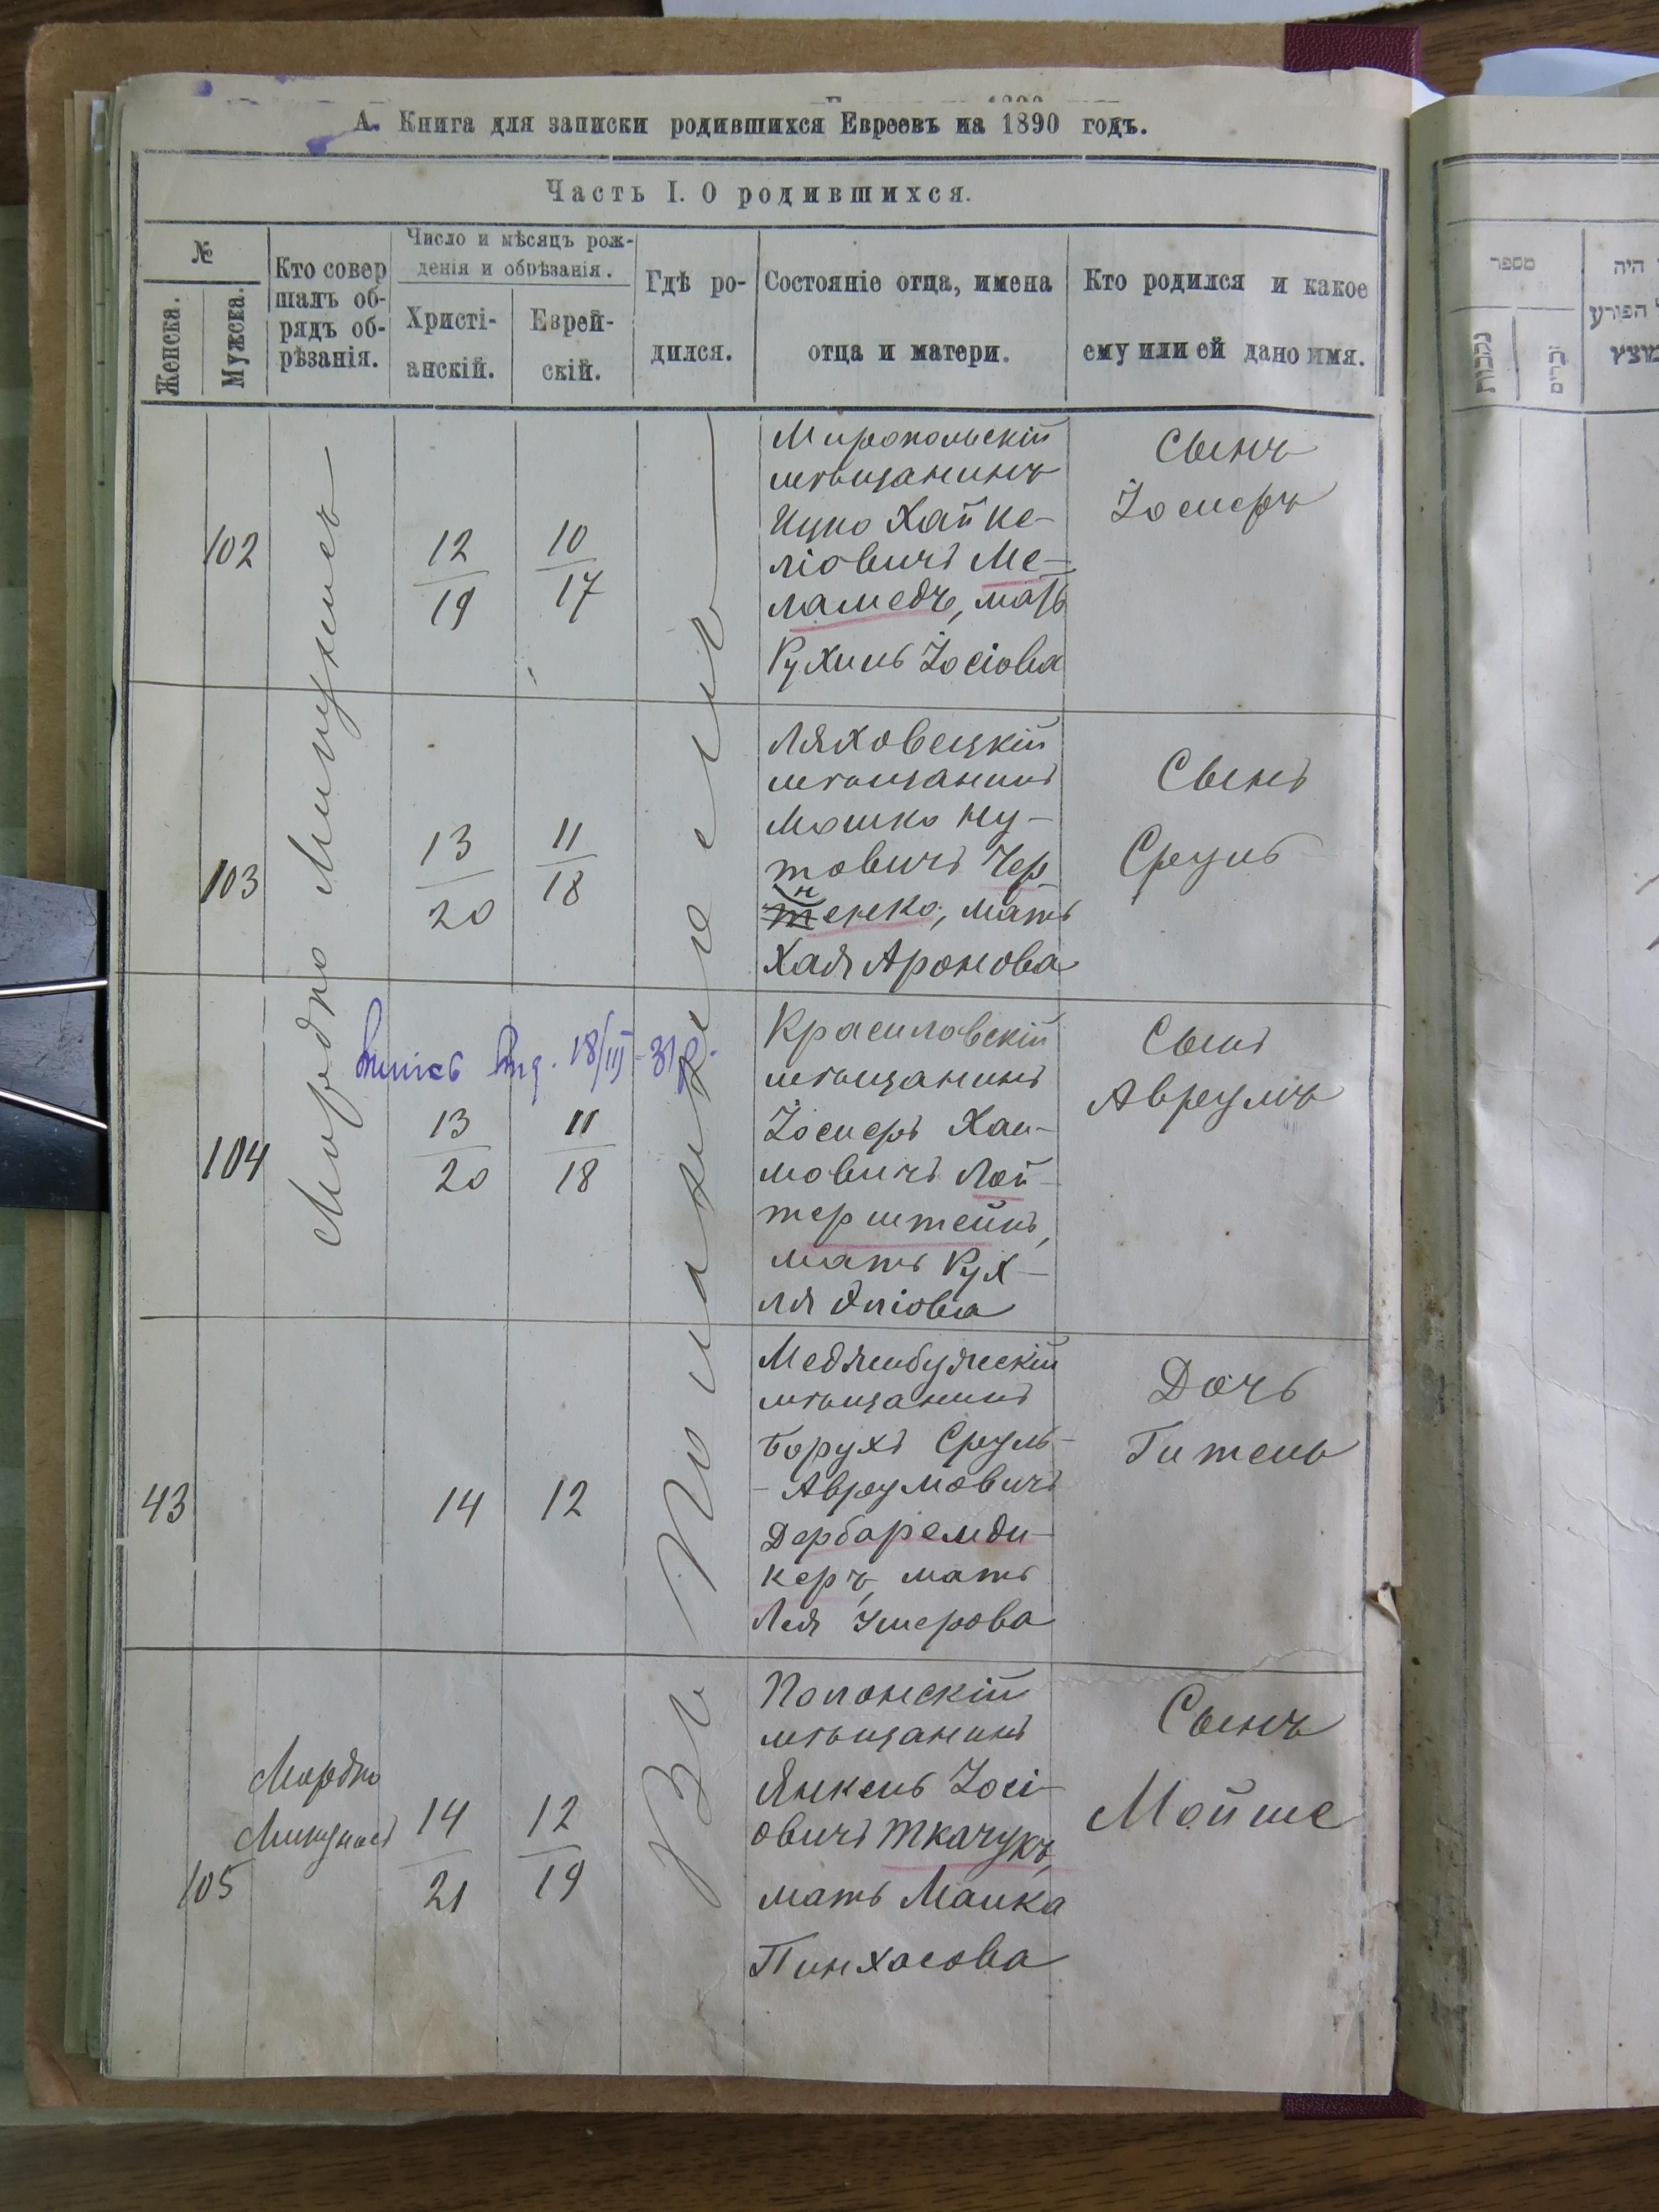 А. Книга для записки родившихся Евреевъ на 1890 годъ.
Часть I. О родившихся.
№
Женска.
Мужска.
Кто совер
шалъ об-
рядъ об-
рѣзанія.
Число и мѣсяцъ рож-
денія и обрѣзанія.
Христі-
анскій.
Еврей-
скій.
Гдѣ ро-
дился.
Состояніе отца, имена
отца и матери.
Кто родился и какое
ему или ей дано имя.
Мордко
Въ Полонномъ
102
12
19
10
17
Миропольскій
мѣщанинъ
Ицко Хайке-
ліовичъ Ме-
ламедъ, мать
Рухиль Іосіова
Сынъ
Іосифъ
103
13
20
11
18
Ляховецкій
мѣщанинъ
Мошко Ну-
товичъ Чер
ненко, мать
Хая Аронова
Сынъ
Сруль
18/III-31
104
13
20
11
18
Красиловскій
мѣщанинъ
Іосифъ Хаи-
мовичъ Лой-
терштейнъ,
мать Рух-
ля
Сынъ
Аврумъ
43
14
12
Меджибужскій
мѣщанинъ
Борухъ Сруль-
-Аврумовичъ
Дербаремди-
керъ, мать
Лея Ушерова
Дочь
Гитель
105
Мордко
14
21
12
19
Полонскій
мѣщанинъ
Янкель Іосі-
овичъ Ткачукъ,
мать Малка
Пинхасова
Сынъ
Мойше
מספר
נקבות
זכרים
היה
הפורע
מוצץ